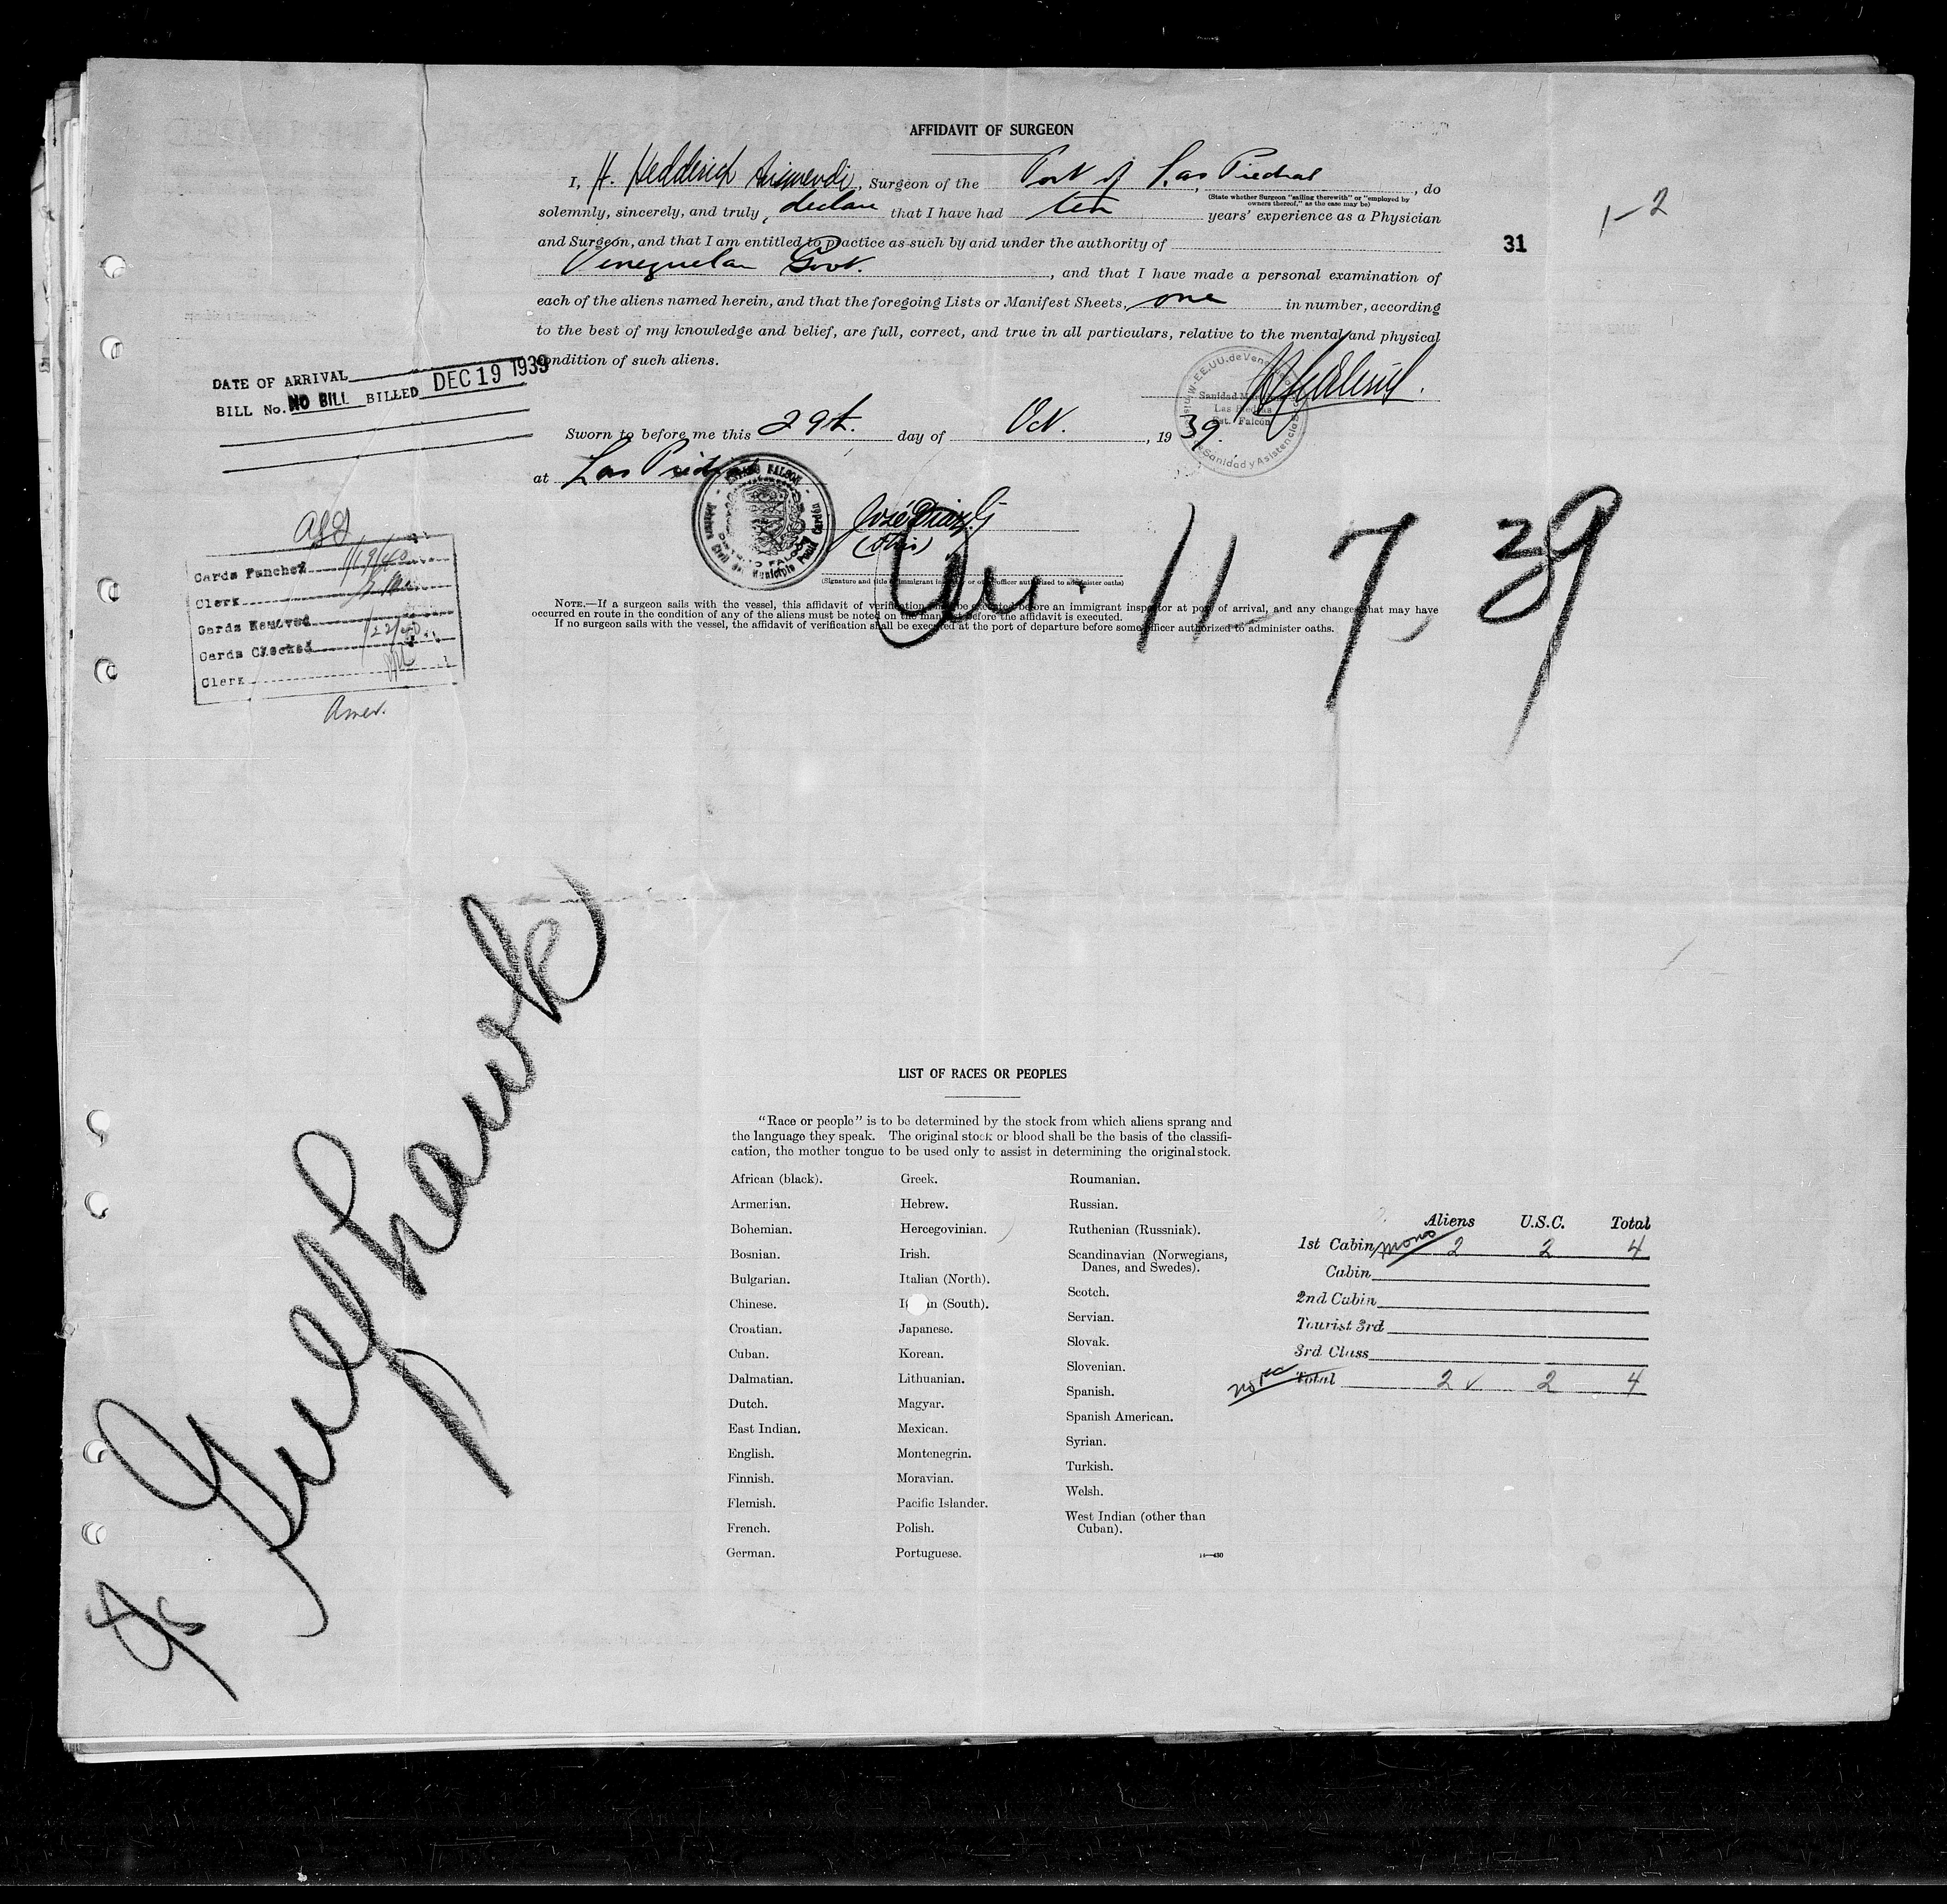 AFFIDAVIT OF SURGEON
I, H. Hedderich Arismendi, Surgeon of the Port of Las Piedras, do
(State whether Surgeon "sailing therewith" or "employed by
owners thereof," as the case may be)
solemnly, sincerely, and truly, declare that I have had ten years' experience as a Physician
and Surgeon, and that I am entitled to practice as such by and under the authority of
Venezuelan Govt., and that I have made a personal examination of
each of the aliens named herein, and that the foregoing Lists or Manifest Sheets, one in number, according
to the best of my knowledge and belief, are full, correct, and true in all particulars, relative to the mental and physical
condition of such aliens.
31
1-2
DATE OF ARRIVAL
BILL No. NO BILL BILLED DEC 19 1939
Sanidad
Las Piedras
Est. Falcón
Sanidad y Asistencia
Sworn to before me this 29th. day of Oct., 1939.
at Las Piedras
ESTADO FALCON
José Diaz G
(Signature and title of immigrant inspector or other officer authorized to administer oaths)
11 7, 39
NOTE.—If a surgeon sails with the vessel, this affidavit of verification shall be executed before an immigrant inspector at port of arrival, and any changes that may have
occurred en route in the condition of any of the aliens must be noted on the manifest before the affidavit is executed.
If no surgeon sails with the vessel, the affidavit of verification shall be executed at the port of departure before some officer authorized to administer oaths.
Cards Punched 1/19/40
Clerk
Cards Removed
Cards Checked 1/22/40
Clerk
Amer.
Gulfhawk
LIST OF RACES OR PEOPLES
"Race or people" is to be determined by the stock from which aliens sprang and
the language they speak. The original stock or blood shall be the basis of the classifi-
cation, the mother tongue to be used only to assist in determining the original stock.
African (black).
Armenian.
Bohemian.
Bosnian.
Bulgarian.
Chinese.
Croatian.
Cuban.
Dalmatian.
Dutch.
East Indian.
English.
Finnish.
Flemish.
French.
German.
Greek.
Hebrew.
Hercegovinian.
Irish.
Italian (North).
Italian (South).
Japanese.
Korean.
Lithuanian.
Magyar.
Mexican.
Montenegrin.
Moravian.
Pacific Islander.
Polish.
Portuguese.
Roumanian.
Russian.
Ruthenian (Russniak).
Scandinavian (Norwegians,
Danes, and Swedes).
Scotch.
Servian.
Slovak.
Slovenian.
Spanish.
Spanish American.
Syrian.
Turkish.
Welsh.
West Indian (other than
Cuban).
14—430
Aliens U.S.C. Total
1st Cabin 2 2 4
Cabin
2nd Cabin
Tourist 3rd
3rd Class
Total 2 ✓ 2 4